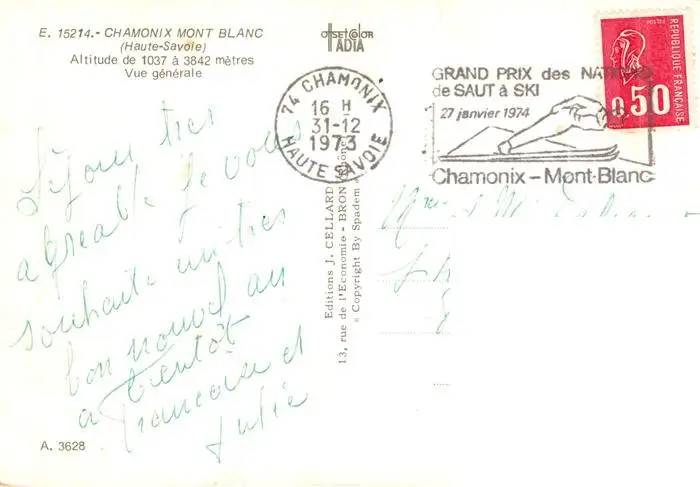 E. 15214.- CHAMONIX MONT BLANC
(Haute-Savoie)
Altitude de 1037 à 3842 mètres
Vue générale
offset color
IADIA
74 CHAMONIX
16 H
31-12
1973
HAUTE SAVOIE
GRAND PRIX des NATIONS
de SAUT à SKI
27 janvier 1974
Chamonix – Mont-Blanc
0,50
RÉPUBLIQUE FRANÇAISE
Séjour très
agréable je vous
souhaite un très
bon nouvel an
a bientôt
Francoise et
Julie
Editions J. CELLARD
13, rue de l'Economie - BRON (Rhône)
« Copyright By Spadem
Mme et M.
A. 3628